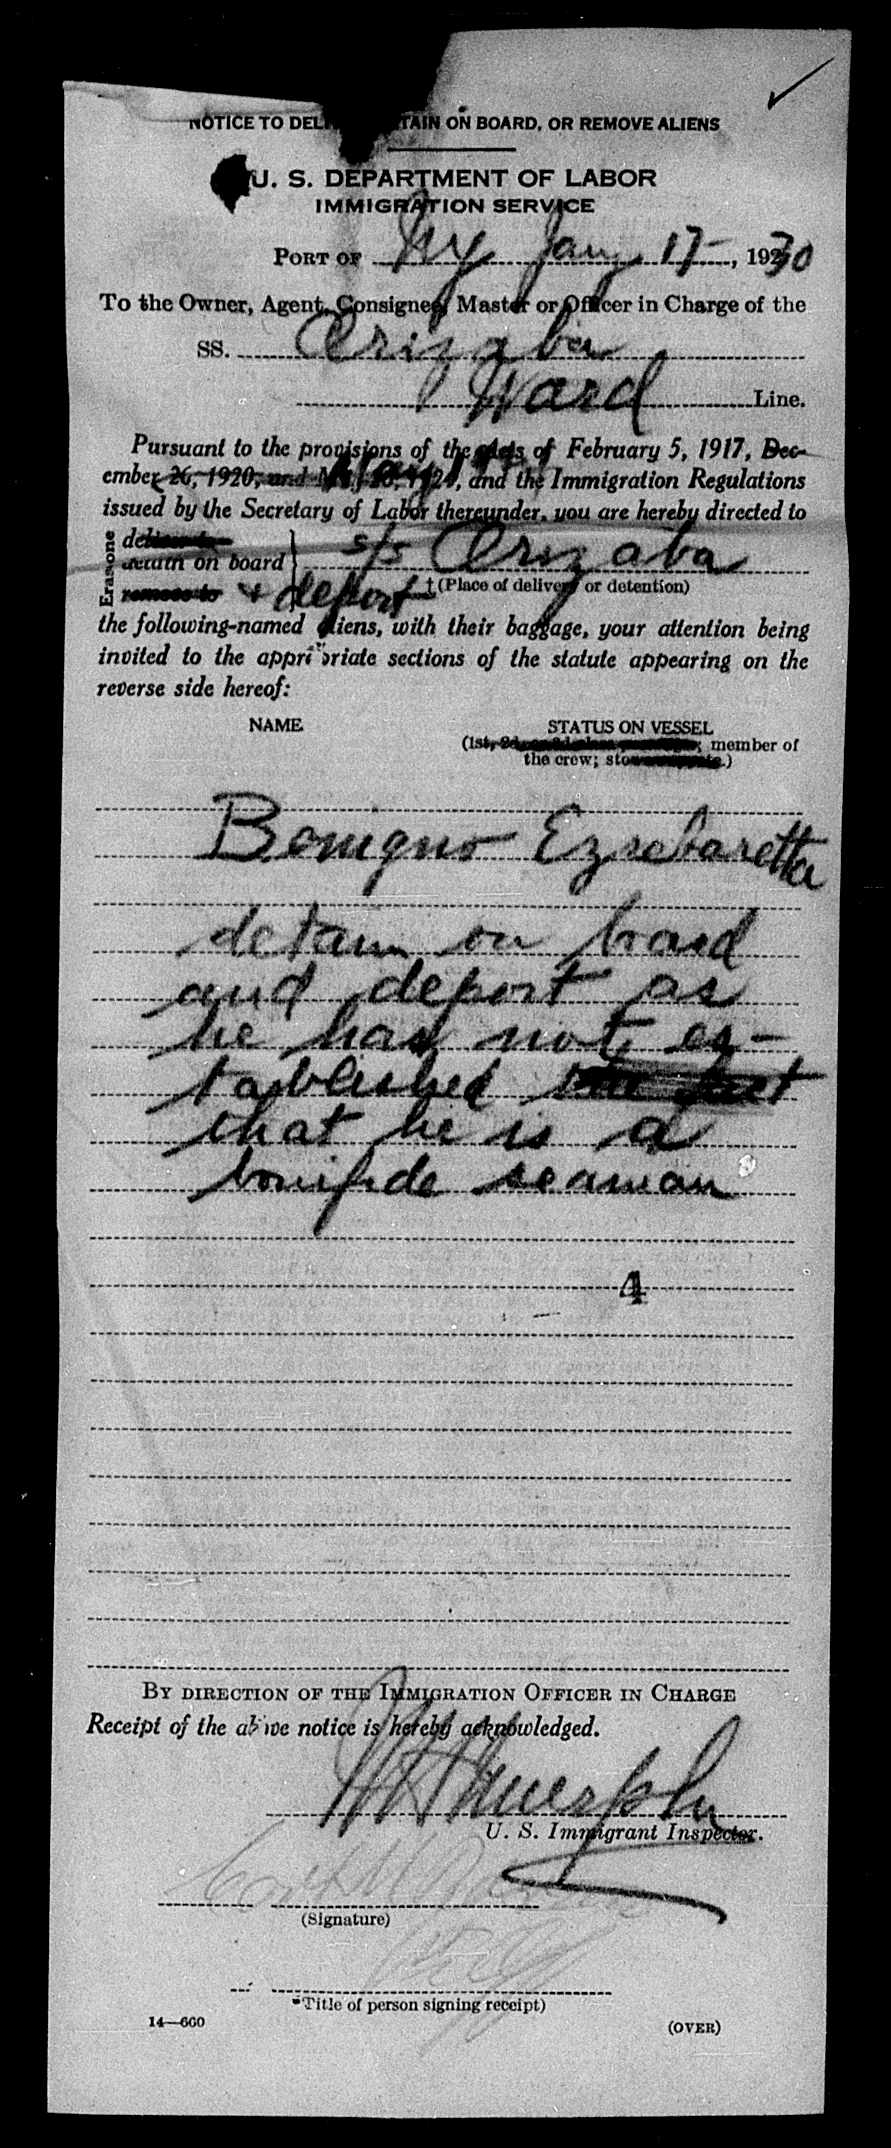 NOTICE TO DEL TAIN ON BOARD, OR REMOVE ALIENS
U. S. DEPARTMENT OF LABOR
IMMIGRATION SERVICE
PORT OF NY Jany 17, 1930
To the Owner, Agent, Consignee, Master or Officer in Charge of the
SS. Orizaba
Ward Line.
Pursuant to the provisions of the acts of February 5, 1917, Dec-
ember 26, 1920, and May 26, 1924, and the Immigration Regulations
issued by the Secretary of Labor thereunder, you are hereby directed to
Erase one
deliver to
detain on board s/s Orizaba
remove to + deport †(Place of delivery or detention)
the following-named aliens, with their baggage, your attention being
invited to the appropriate sections of the statute appearing on the
reverse side hereof:
NAME STATUS ON VESSEL
(1st, 2d, member of
the crew; stowaways.)
Benigno
detain on board
and deport as
he has not es-
tablished the fact
that he is a
bonifide seaman
4
BY DIRECTION OF THE IMMIGRATION OFFICER IN CHARGE
Receipt of the above notice is hereby acknowledged.
Murphy
U. S. Immigrant Inspector.
(Signature)
*Title of person signing receipt)
14—660 (OVER)